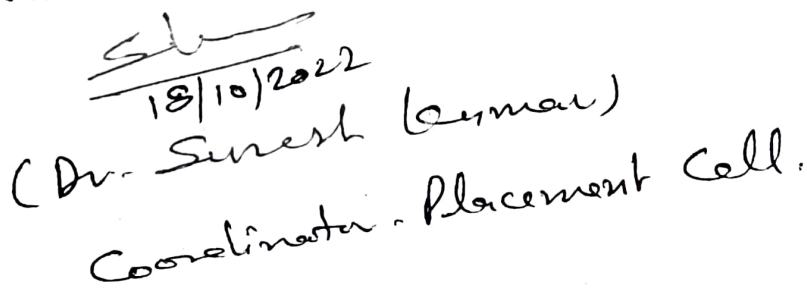 18/10/2022
(Dr. Suresh Kumar)
Coordinator. Placement Cell.